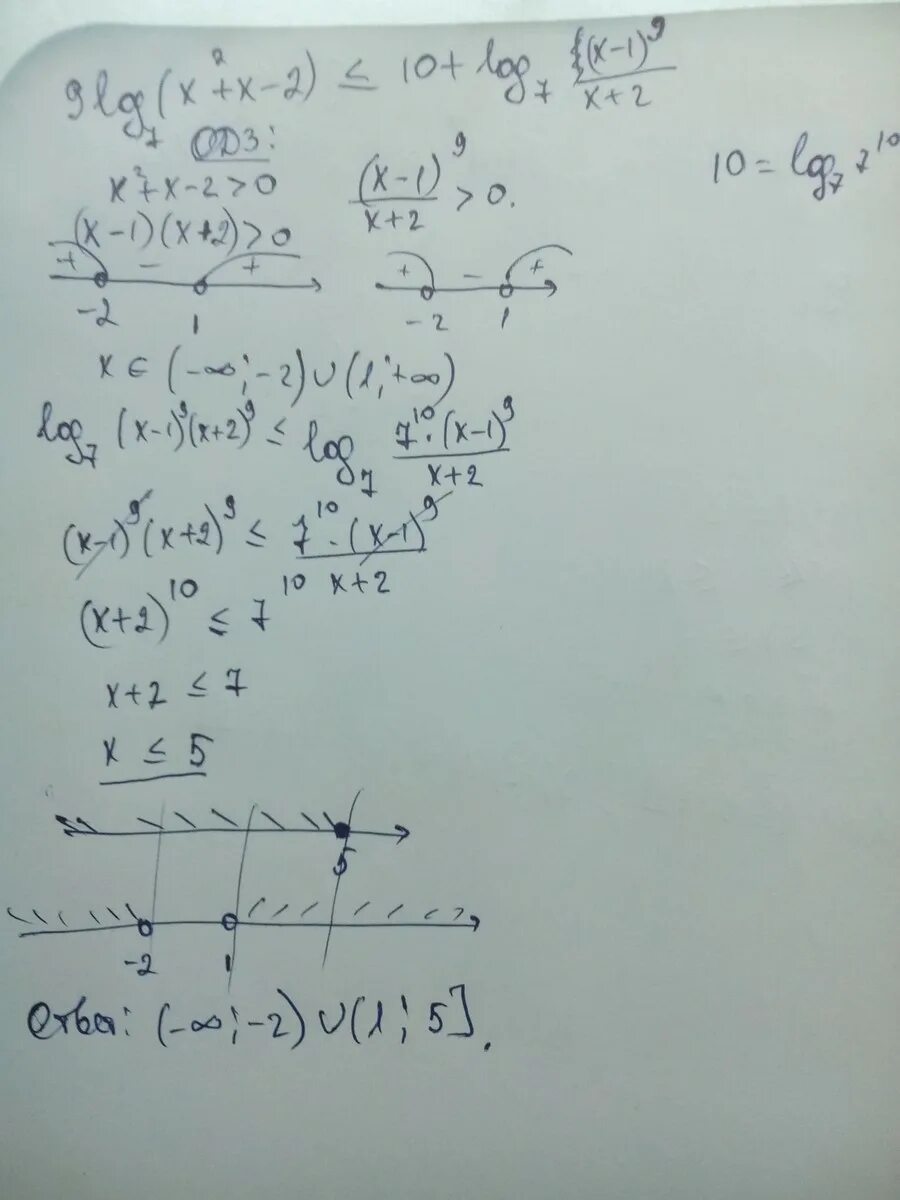 9log₇(x²+x-2) ≤ 10+log₇ (x-1)⁹/(x+2)
10 = log₇ 7¹⁰
ОДЗ:
x²+x-2>0 (x-1)⁹/(x+2) > 0.
(x-1)(x+2)>0
+ - + + - +
-2 1 -2 1
x ∈ (-∞;-2)∪(1;+∞)
log₇ (x-1)⁹(x+2)⁹ ≤ log₇ 7¹⁰·(x-1)⁹/(x+2)
(x-1)⁹(x+2)⁹ ≤ 7¹⁰·(x-1)⁹/(x+2)
(x+2)¹⁰ ≤ 7¹⁰
x+2 ≤ 7
x ≤ 5
5
-2 1
Ответ: (-∞;-2)∪(1;5].